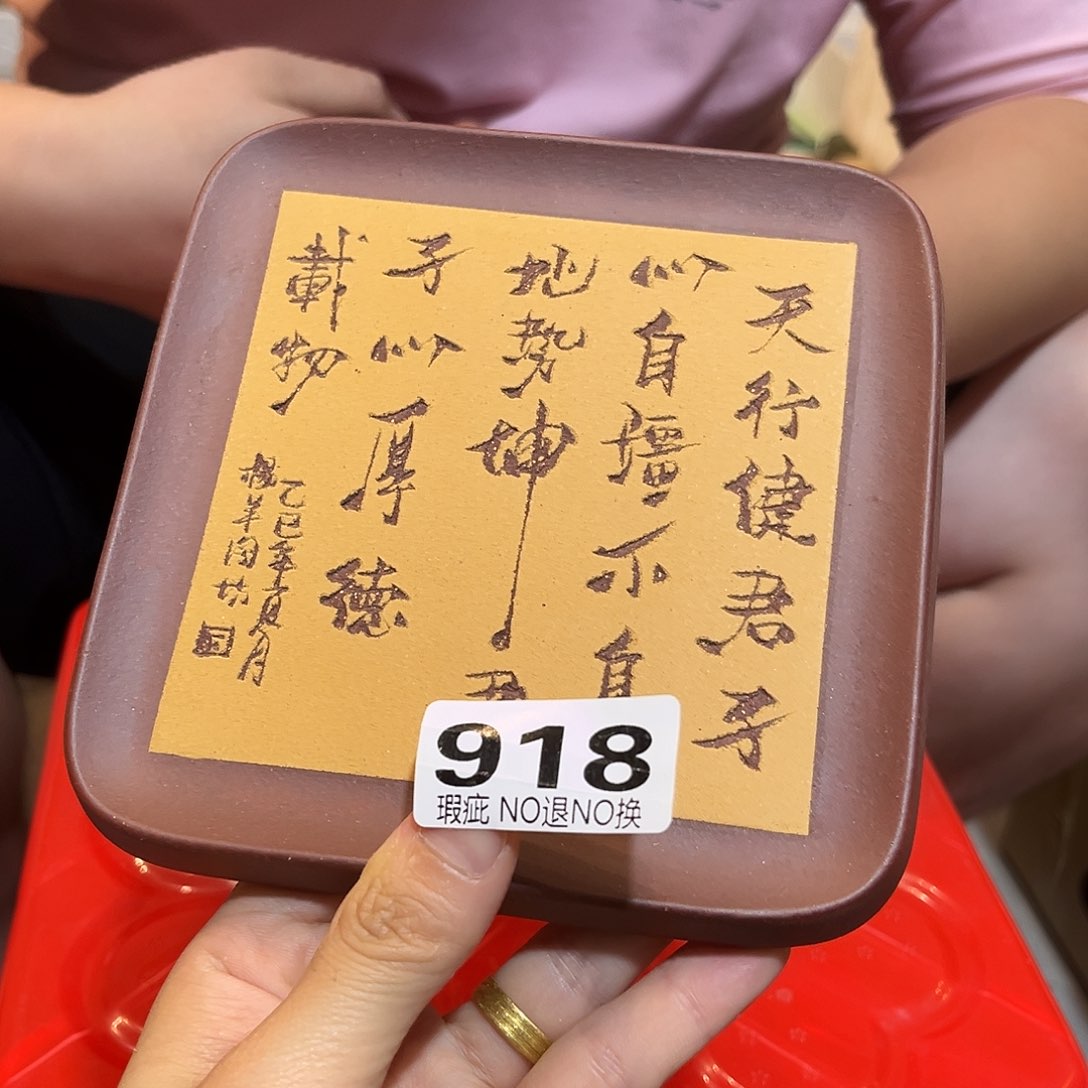 天行健君子
以自彊不息
地勢坤君
子以厚德
載物
乙巳年月
陶坊
918
瑕疵 NO退NO换